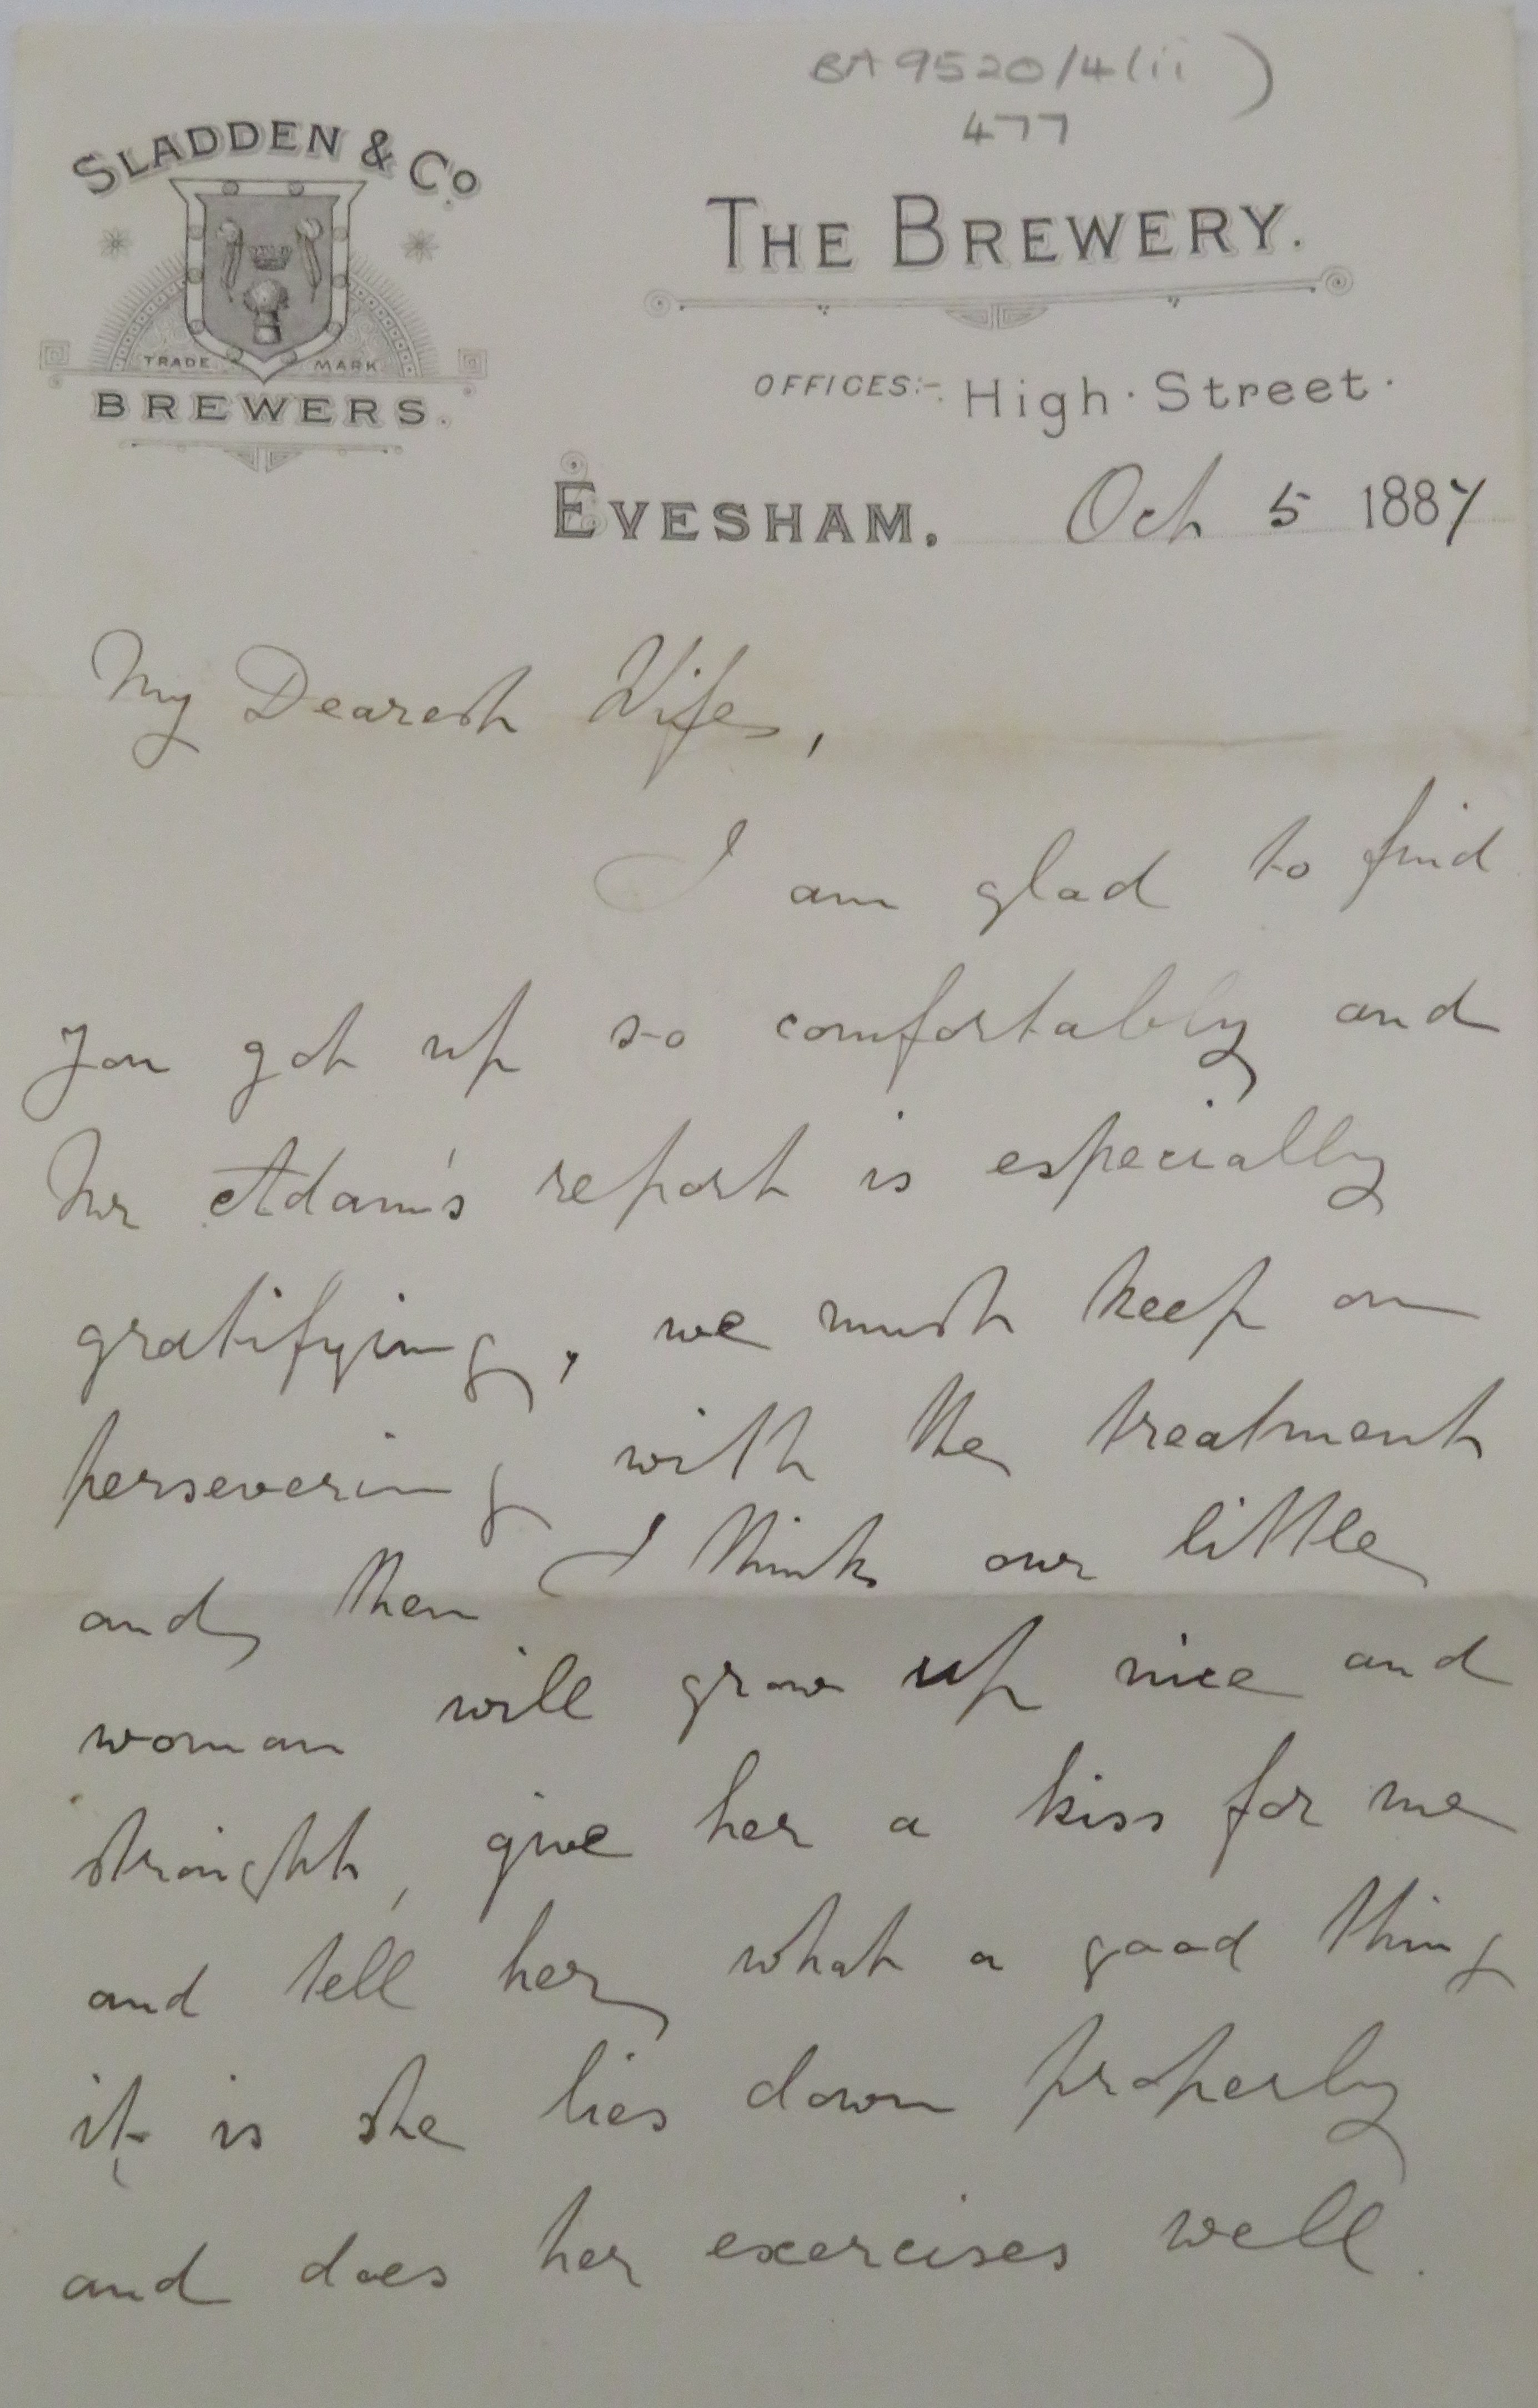 BA 9520/4(ii)
477
SLADDEN & Co.
TRADE MARK
BREWERS.
THE BREWERY.
OFFICES:- High Street.
EVESHAM. Oct 5 1887
My Dearest Wife,
I am glad to find
you got up so comfortably and
Mr Adam's report is especially
gratifying, we must keep on
persevering with the treatment
and then I think our little
woman will grow up nice and
straight, give her a kiss for me
and tell her what a good thing
it is she lies down properly
and does her exercises well.